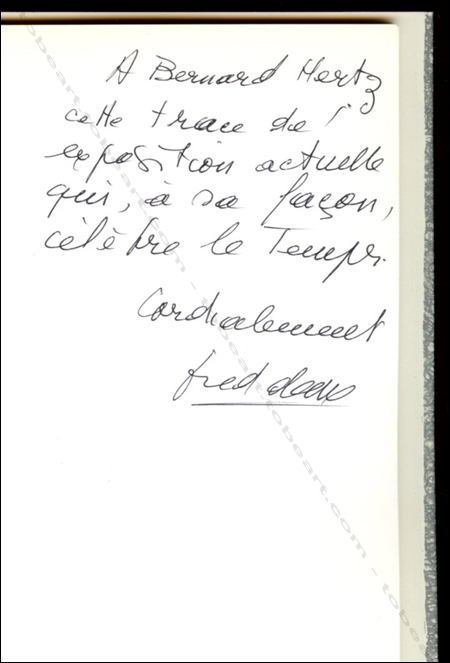 A Bernard Hertz
cette trace de l'
exposition actuelle
qui, à sa façon,
célèbre le Temps.
Cordialement
fred deux
tobeart.com - tobeart.com - tobeart.com - tobeart.com